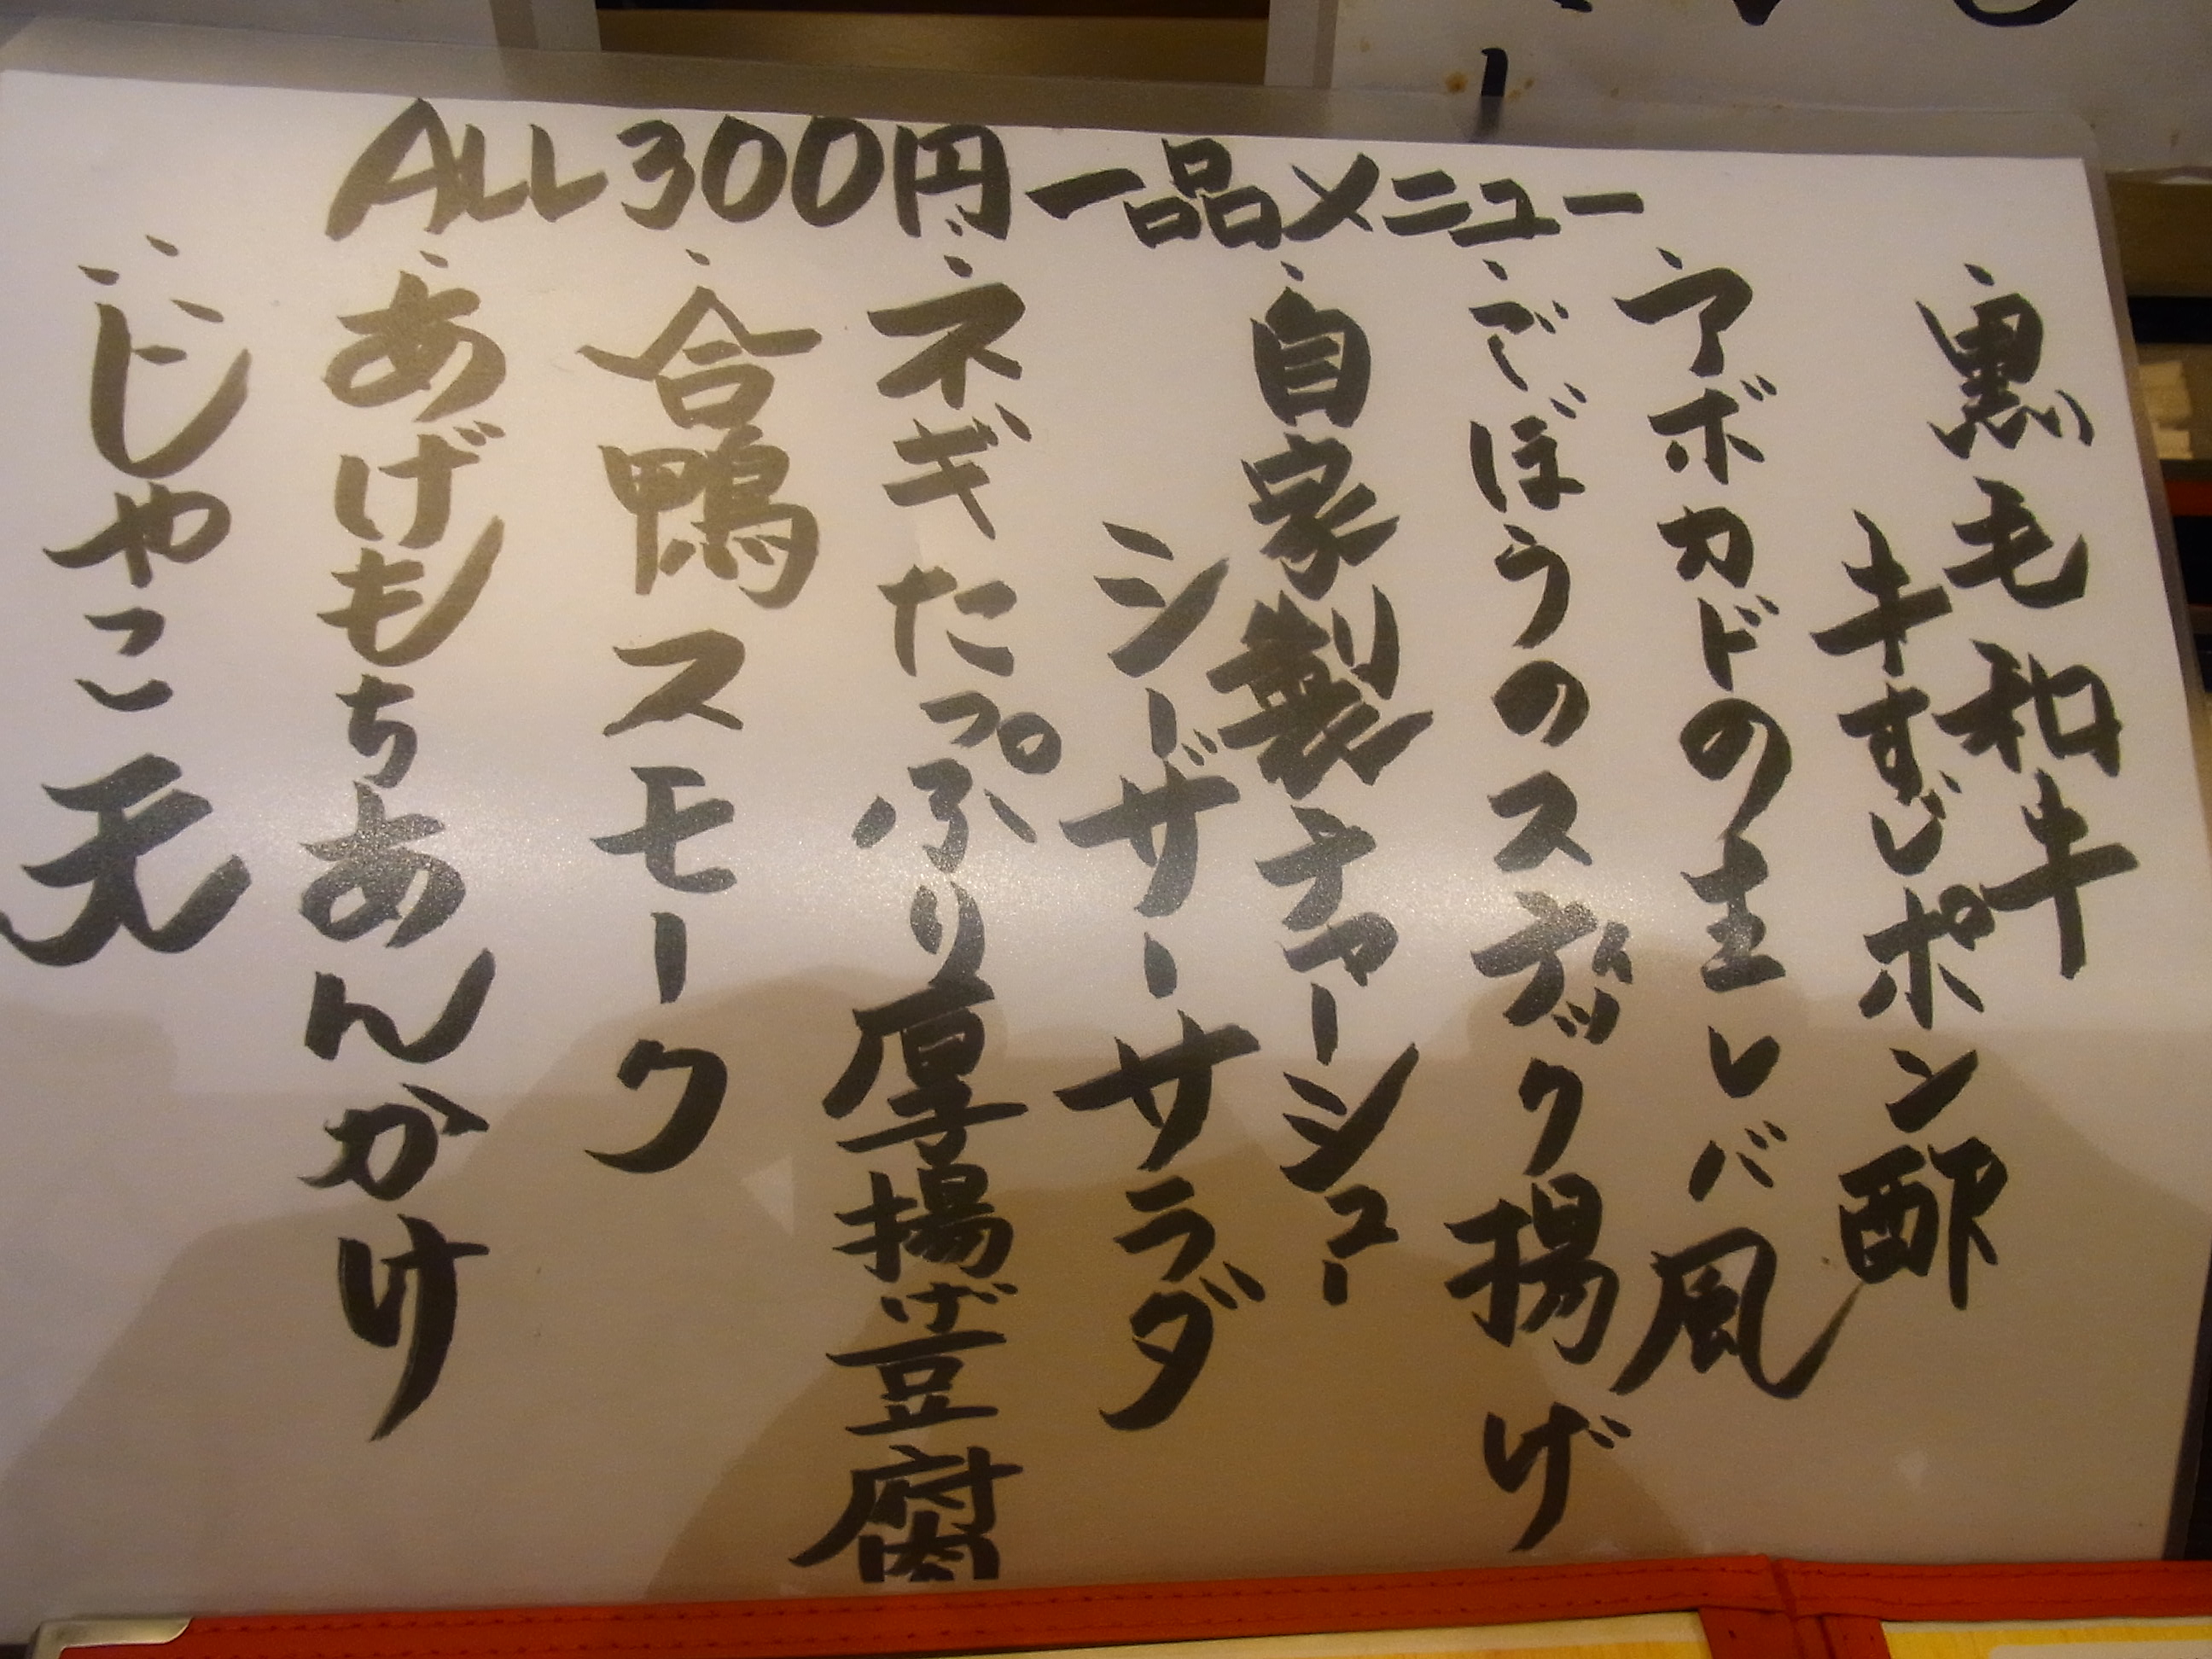 ALL300円一品メニュー
・黒毛和牛
牛すじポン酢
・アボカドの生レバ風
・ごぼうのスティック揚げ
・自家製チャーシュー
シーザーサラダ
・ネギたっぷり厚揚げ豆腐
・合鴨スモーク
・あげもちあんかけ
・じゃこ天